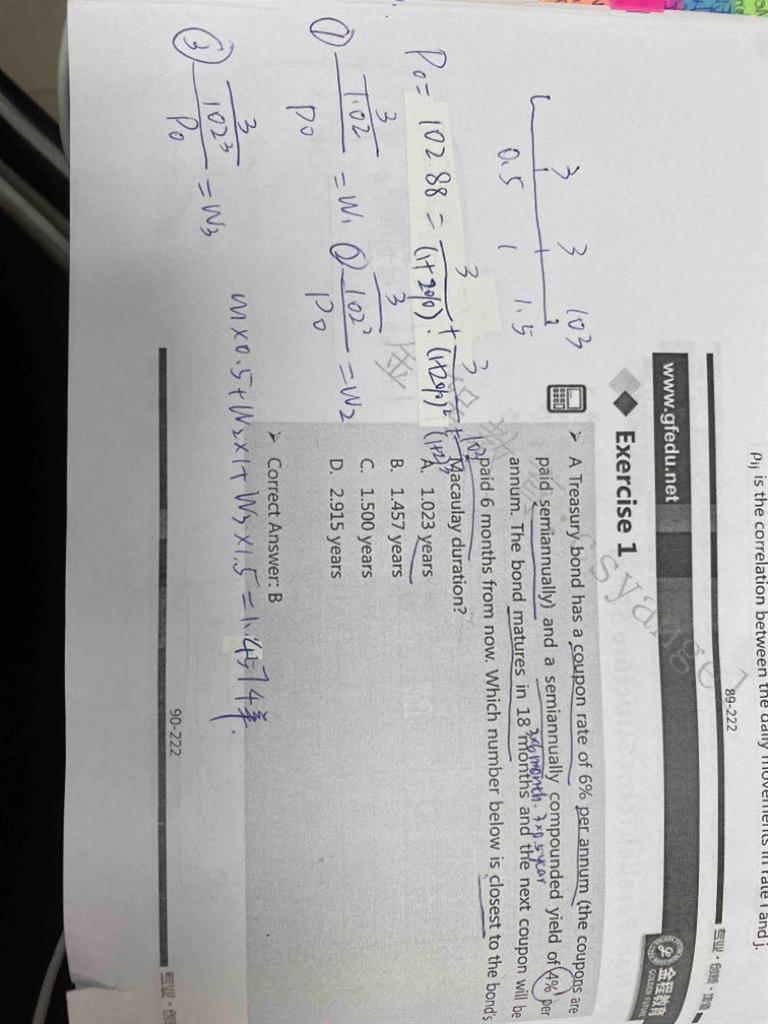 ρij is the correlation between the daily movements in rate i and j.
89-222
专业·创新·增值
www.gfedu.net
金程教育
GOLDEN FUTURE
Exercise 1
➢ A Treasury bond has a coupon rate of 6% per annum (the coupons are
paid semiannually) and a semiannually compounded yield of 4% per
3x6month. 3x0.5year
annum. The bond matures in 18 months and the next coupon will be
paid 6 months from now. Which number below is closest to the bond's
Macaulay duration?
A. 1.023 years
B. 1.457 years
C. 1.500 years
D. 2.915 years
➢ Correct Answer: B
90-222
3 3 103
0.5 1 1.5
P0 = 102.88 = 3/(1+2%) + 3/(1+2%)² + 103/(1+2%)³
① 3/1.02 / P0 = W1 ② 3/102² / P0 = W2
③ 3/102³ / P0 = W3
W1 x0.5+W2x1+W3x1.5=1.4574年.